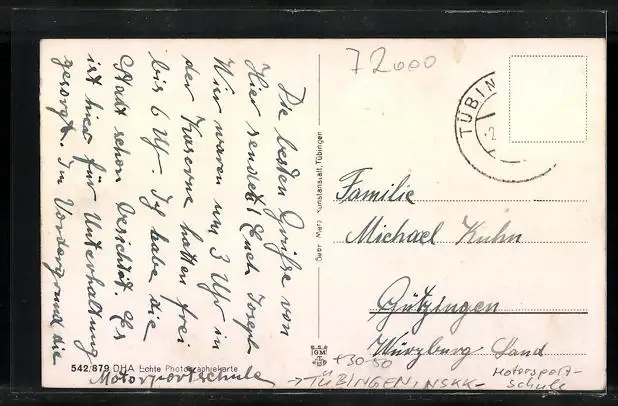 Die besten Grüße von
Hier sendet Euch Joseph
Wir waren um 3 Uhr in
der Kaserne hatten frei
bis 6 Uhr. Ich habe die
Stadt schon besichtet. Es
ist hier für Unterhaltung
gesorgt. Im Vordergrund die
Motorsportschule
542/879 DHA Echte Photographiekarte
Gebr. Metz Kunstanstalt, Tübingen
GM
72000
TÜBIN
Familie
Michael Kuhn
Gützingen
Würzburg Land
+30-50
→TÜBINGEN, NSKK-
Motorsport-
Schule